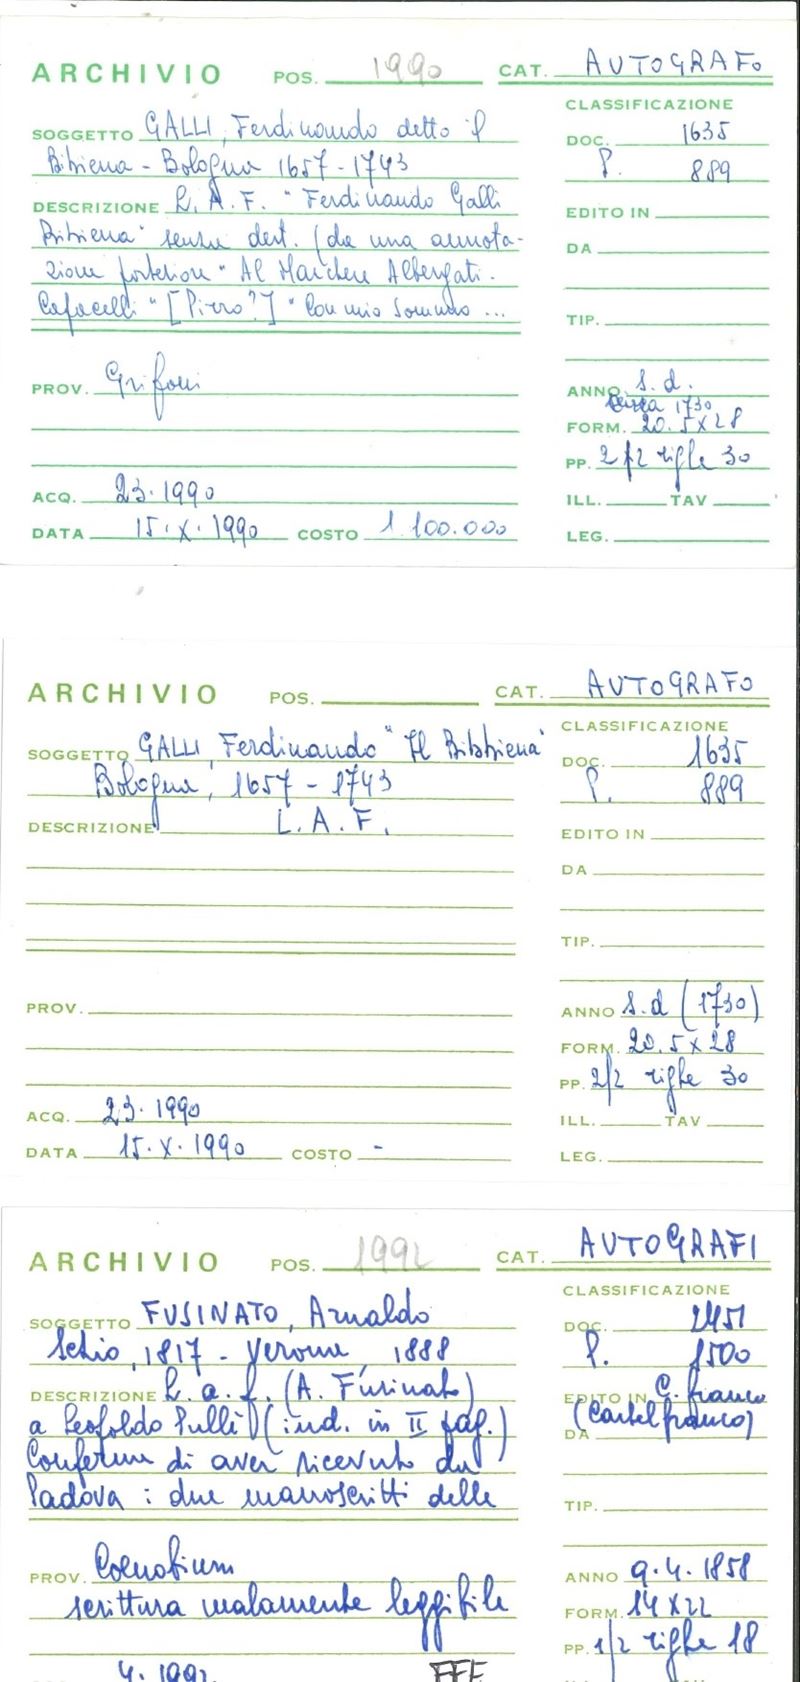 ARCHIVIO POS. 1990 CAT. AUTOGRAFO
CLASSIFICAZIONE
SOGGETTO GALLI, Ferdinando detto il
DOC. 1635
Bibiena - Bologna 1657 - 1743
P. 889
DESCRIZIONE L. A. F. "Ferdinando Galli
EDITO IN
Bibiena" senza dest. (da una annota-
DA
zione posteriore "Al Marchese Albergati.
Capacelli" [Pirro?] "Con mio sommo ...
TIP.
PROV. Grifoni
ANNO s. d.
circa 1730
FORM. 20.5 x 28
PP. 2/2 righe 30
ACQ. 23.1990
ILL. TAV
DATA 15.X.1990 COSTO 1.100.000
LEG.
ARCHIVIO POS. CAT. AUTOGRAFO
CLASSIFICAZIONE
SOGGETTO GALLI, Ferdinando "Il Bibbiena"
DOC. 1635
Bologna, 1657 - 1743
P. 889
DESCRIZIONE L. A. F.
EDITO IN
DA
TIP.
PROV.
ANNO s.d (1730)
FORM. 20.5 x 28
PP. 2/2 righe 30
ACQ. 23.1990
ILL. TAV
DATA 15.X.1990 COSTO -
LEG.
ARCHIVIO POS. 1992 CAT. AUTOGRAFI
CLASSIFICAZIONE
SOGGETTO FUSINATO, Arnaldo
DOC. 2451
Schio, 1817 - Verona, 1888
P. 1500
DESCRIZIONE L. a. f. (A. Fusinato)
EDITO IN C. franco
a Leopoldo Pullè (ind. in II pag.)
(Castelfranco)
DA
Conferma di aver ricevuto da
Padova: due manoscritti delle
TIP.
PROV. Coenobium
ANNO 9.4.1858
scrittura malamente leggibile
FORM. 14 x 22
PP. 1/2 righe 18
4.1992 FFF